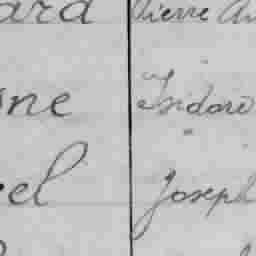 ard Pierre
ne Isidore
el Joseph